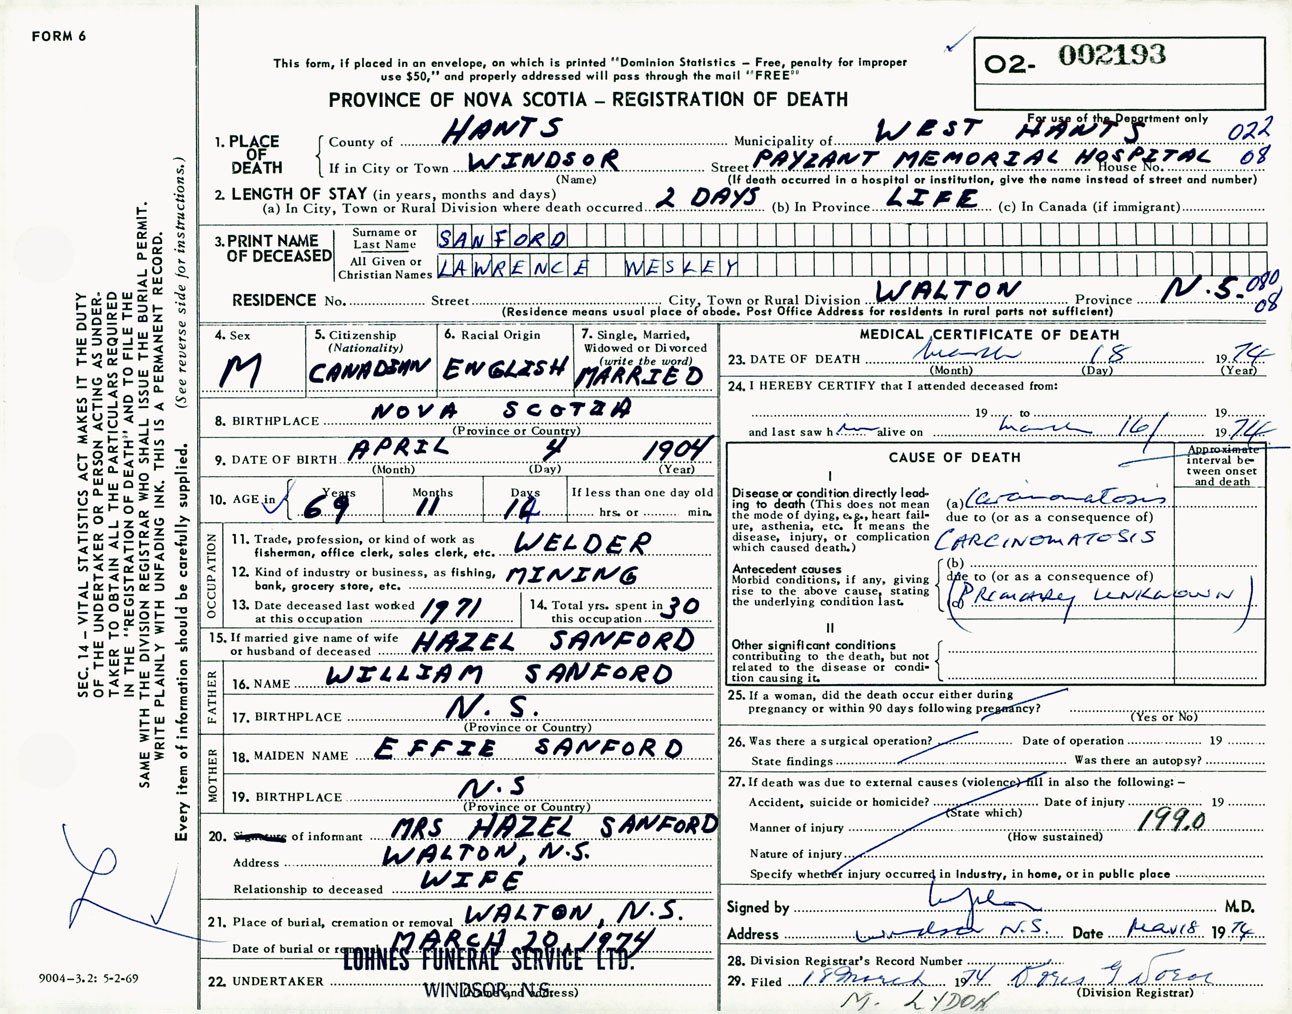 FORM 6
This form, if placed in an envelope, on which is printed "Dominion Statistics – Free, penalty for improper
use $50," and properly addressed will pass through the mail "FREE"
PROVINCE OF NOVA SCOTIA – REGISTRATION OF DEATH
O2- 002193
For use of the Department only
1. PLACE OF DEATH
County of HANTS Municipality of WEST HANTS 022
If in City or Town WINDSOR Street PAYZANT MEMORIAL HOSPITAL House No. 08
(Name) (If death occurred in a hospital or institution, give the name instead of street and number)
2. LENGTH OF STAY (in years, months and days)
(a) In City, Town or Rural Division where death occurred 2 DAYS (b) In Province LIFE (c) In Canada (if immigrant)
3. PRINT NAME OF DECEASED
Surname or Last Name SANFORD
All Given or Christian Names LAWRENCE WESLEY
RESIDENCE No. Street City, Town or Rural Division WALTON Province N.S. 080
08
(Residence means usual place of abode. Post Office Address for residents in rural parts not sufficient)
4. Sex
M
5. Citizenship
(Nationality)
CANADIAN
6. Racial Origin
ENGLISH
7. Single, Married,
Widowed or Divorced
(write the word)
MARRIED
8. BIRTHPLACE NOVA SCOTIA
(Province or Country)
9. DATE OF BIRTH APRIL 4 1904
(Month) (Day) (Year)
10. AGE in
Years Months Days If less than one day old
69 11 14 hrs. or min.
OCCUPATION
11. Trade, profession, or kind of work as
fisherman, office clerk, sales clerk, etc. WELDER
12. Kind of industry or business, as fishing,
bank, grocery store, etc. MINING
13. Date deceased last worked
at this occupation 1971
14. Total yrs. spent in
this occupation 30
15. If married give name of wife
or husband of deceased HAZEL SANFORD
FATHER
16. NAME WILLIAM SANFORD
17. BIRTHPLACE N. S.
(Province or Country)
MOTHER
18. MAIDEN NAME EFFIE SANFORD
19. BIRTHPLACE N.S
(Province or Country)
20. Signature of informant MRS HAZEL SANFORD
Address WALTON, N.S.
Relationship to deceased WIFE
21. Place of burial, cremation or removal WALTON, N.S.
Date of burial or removal MARCH 20, 1974
LOHNES FUNERAL SERVICE LTD.
22. UNDERTAKER WINDSOR, N.S.
(Name and address)
MEDICAL CERTIFICATE OF DEATH
23. DATE OF DEATH March 18 1974
(Month) (Day) (Year)
24. I HEREBY CERTIFY that I attended deceased from:
19 to 19
and last saw him alive on march 16/ 1974
CAUSE OF DEATH
Approximate
interval be-
tween onset
and death
I
Disease or condition directly lead-
ing to death (This does not mean
the mode of dying, e.g., heart fail-
ure, asthenia, etc. It means the
disease, injury, or complication
which caused death.)
(a) Carcinomatosis
due to (or as a consequence of)
CARCINOMATOSIS
Antecedent causes
Morbid conditions, if any, giving
rise to the above cause, stating
the underlying condition last.
(b)
due to (or as a consequence of)
(c) (PRIMARY UNKNOWN)
II
Other significant conditions
contributing to the death, but not
related to the disease or condi-
tion causing it.
25. If a woman, did the death occur either during
pregnancy or within 90 days following pregnancy?
(Yes or No)
26. Was there a surgical operation? Date of operation 19
State findings Was there an autopsy?
27. If death was due to external causes (violence) fill in also the following: –
Accident, suicide or homicide? Date of injury 19
(State which)
Manner of injury 199.0
(How sustained)
Nature of injury
Specify whether injury occurred in Industry, in home, or in public place
Signed by M.D.
Address Windsor N.S. Date Mar 18 1974
28. Division Registrar's Record Number
29. Filed 18 March 1974 Doris G
(Division Registrar)
M. LYDON
SEC. 14 – VITAL STATISTICS ACT MAKES IT THE DUTY
OF THE UNDERTAKER OR PERSON ACTING AS UNDER-
TAKER TO OBTAIN ALL THE PARTICULARS REQUIRED
IN THE "REGISTRATION OF DEATH" AND TO FILE THE
SAME WITH THE DIVISION REGISTRAR WHO SHALL ISSUE THE BURIAL PERMIT.
WRITE PLAINLY WITH UNFADING INK. THIS IS A PERMANENT RECORD.
Every item of information should be carefully supplied. (See reverse side for instructions.)
9004-3.2: 5-2-69